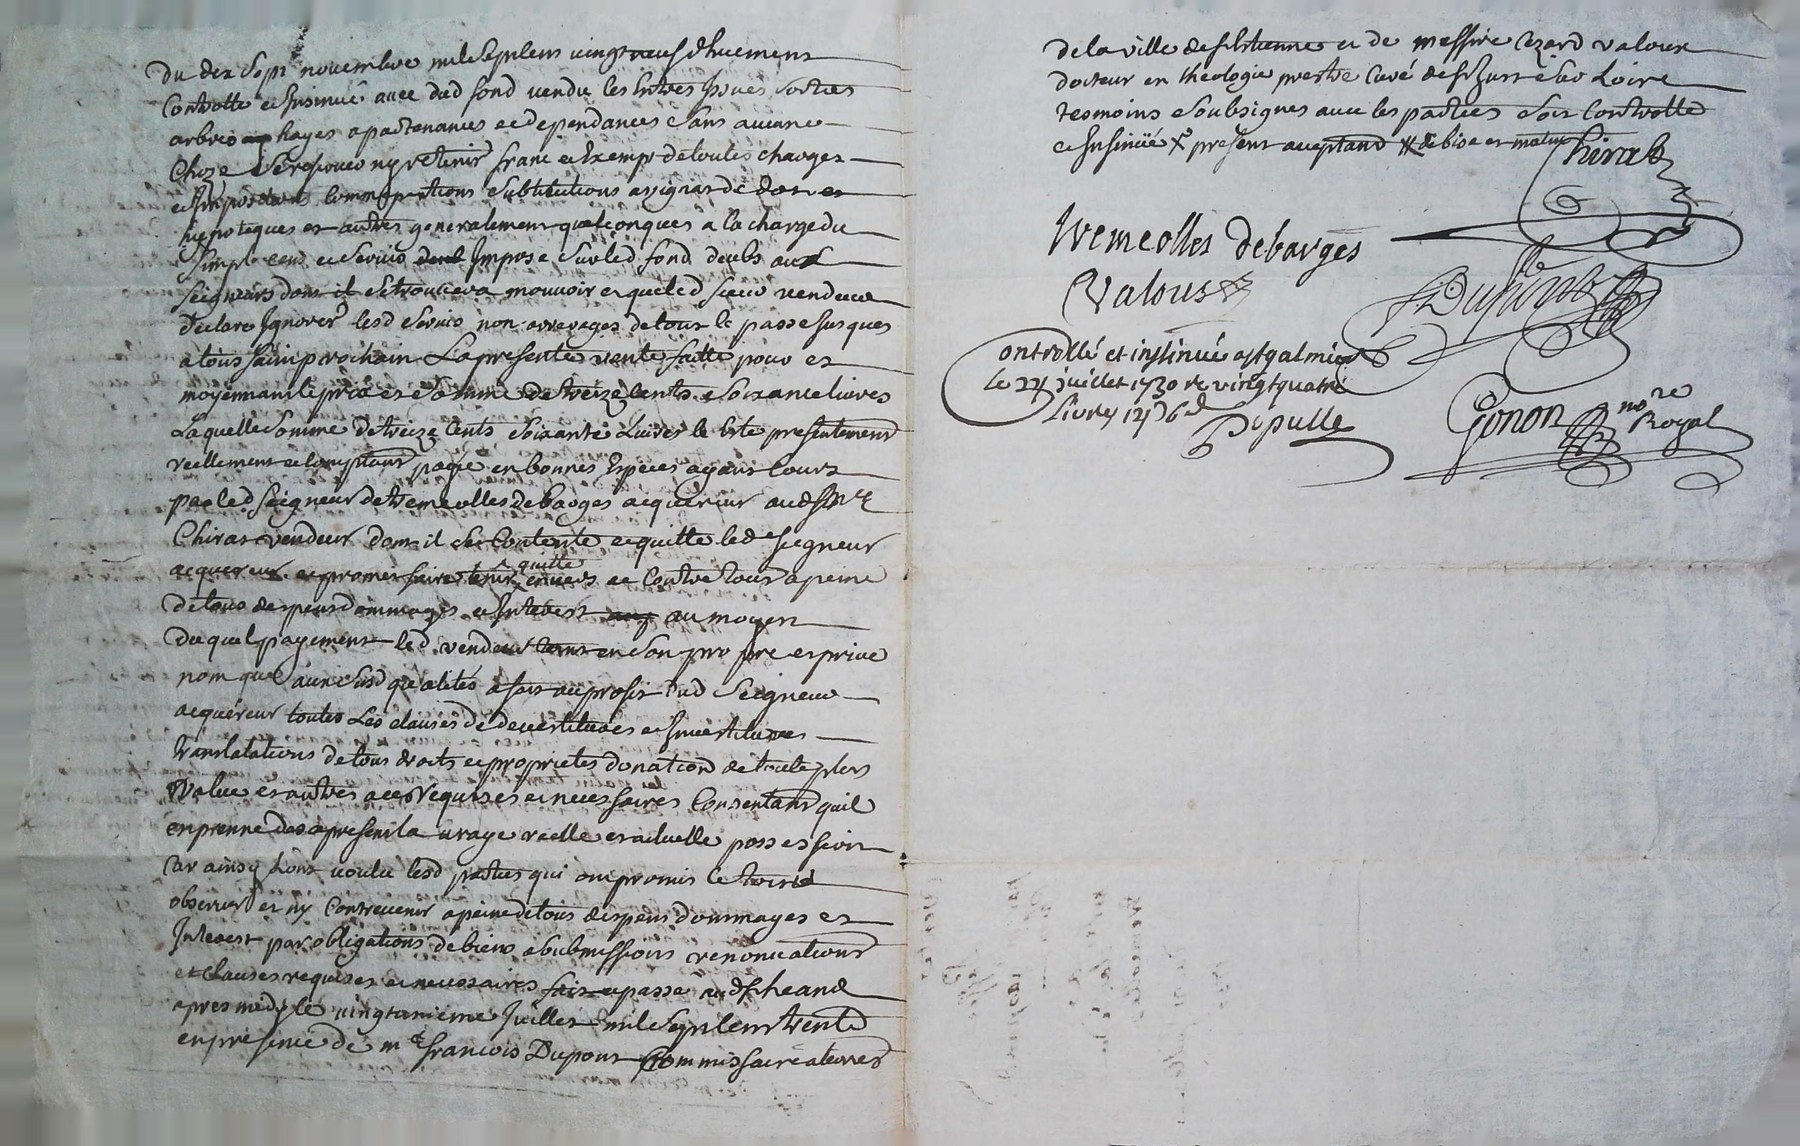 du dix sept novembre mil sept cens vingt neuf dhuement
Controllé et Insinué avec dud fond vendu les Entrés Issues sorties
arbres hayes apartenances et dependances sans aucune
Choze se reserver ny retenir franc et Exempt de toutes charges
et Impositions Commoprations substitutions arrerages de dot et
hipoteques et autres generalement quelconques a la charge du
simple cens et servis Imposé sur led fond deubs aux
seigneurs dont il se trouvera mouvoir et que led sieur vendeur
declare Ignorer lesd servis non arrerages de tout le passé jusques
a tous saint prochain La presente vente faitte pour et
moyennant le prix et somme de treize cents soixante livres
Laquelle somme de treize Cents soixante Livres le été presentement
reellement et comptant payé en bonnes Especes ayant Cours
par led seigneur de tremeolles de barges acquereur aud sr Mre
Chirat vendeur dont il se Contente et quitte led seigneur
quitte
acquereur et promet faire tenir envers et Contre tous a peine
de tous despens dommages et Interest au moyen
du quel payement led. vendeur en son propre et privé
nom que aux susd qualités a fait au profit dud seigneur
acquereur toutes Les clauses de devestitures et Investitures
translatations de tous droits et proprietes donation de toute plus
value et autres a ces requises et necessaires Consentant quil
en prenne des a present la vraye reelle et actuelle possession
Car ainsy Lont voulu lesd parties qui ont promis le tout
observer et ny Contrevenir a peine de tous despens dommages et
Interest par obligations de biens submissions renonciations
et Clauses requises et necessaires fait et passé aud St heand
apres midy le vingtunieme Juillet mil sept cens trente
en presence de me francois Dupont Commissaire a terres
de la ville de st Etienne et de messire Cezard valous
docteur en theologie prestre Curé de st Just sur Loire
tesmoins soubsignes avec les parties soit Controllé
et Insinüé X present acceptant X de bise et matin Chirat
tremeolles debarges
Valous
Dupont
Controllé et insinué a st galmier
le 24 juillet 1730 rc vingt quatre
livres 12s 6d
Pupulle
Gonon nore
Royal